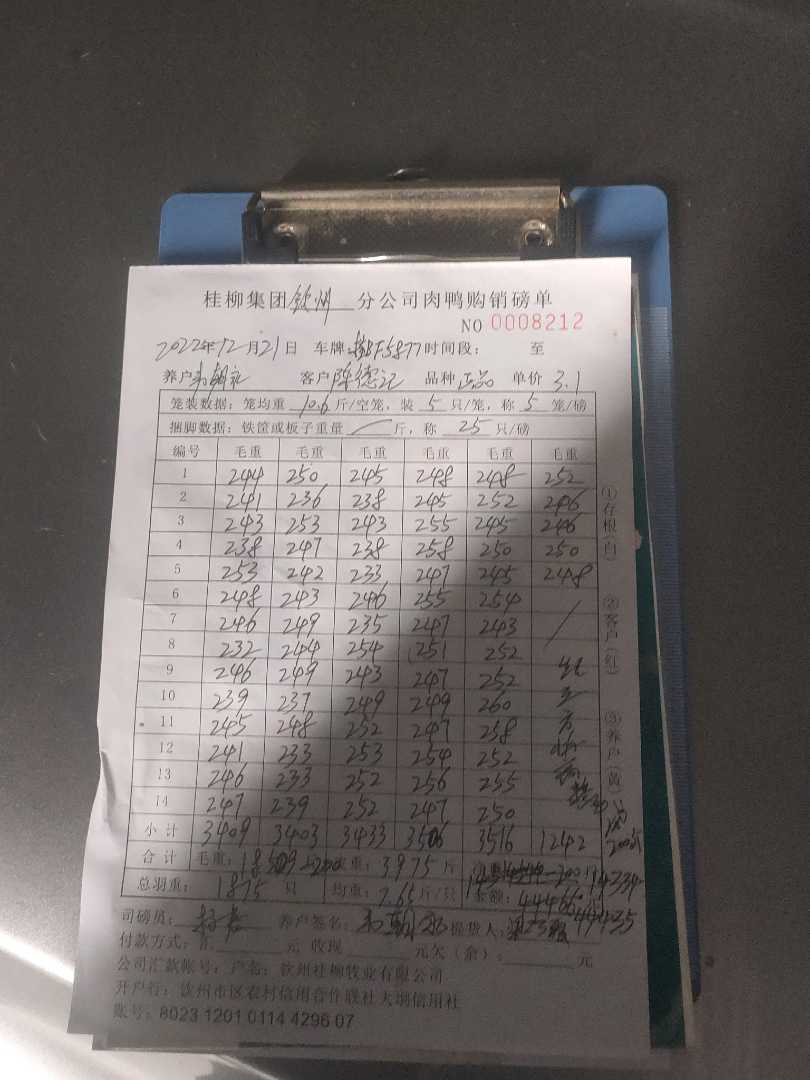 桂柳集团钦州分公司肉鸭购销磅单
NO 0008212
2022年12月21日 车牌: F5877 时间段: 至
养户 客户 陈德记 品种 正品 单价 3.1
笼装数据: 笼均重 10.6 斤/空笼, 装 5 只/笼, 称 5 笼/磅
捆脚数据: 铁筐或板子重量 / 斤, 称 25 只/磅
编号 毛重 毛重 毛重 毛重 毛重 毛重
1 244 250 245 248 248 252
2 241 236 238 245 252 246
3 243 253 243 255 245 246
4 238 247 238 258 250 250
5 253 242 233 247 245 248
6 248 243 246 255 254 /
7 246 249 235 247 243
8 232 244 254 251 252
9 246 249 243 247 252
10 239 237 249 249 260
11 245 248 252 247 258
12 241 233 253 254 252
13 246 233 252 256 255
14 247 239 252 247 250
小计 3409 3403 3433 3506 3516 1242
合计 毛重: 18509 -200 重: 3975 斤 净重: -200 14334
总羽重: 1875 只 均重: 7.65 斤/只 金额: 44466 44435
200斤
司磅员: 养户签名: 提货人:
付款方式: 汇 元 收现 元欠(余): 元
公司汇款帐号: 户名: 钦州桂柳牧业有限公司
开户行: 钦州市区农村信用合作联社大垌信用社
账号: 8023 1201 0114 4296 07
①存根(白) ②客户(红) ③养户(黄)